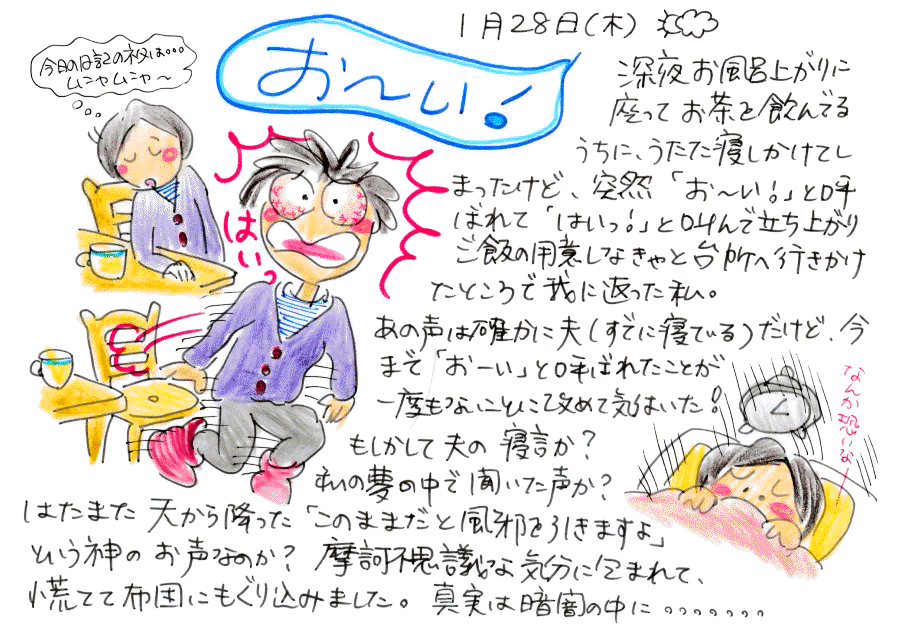 1月28日(木)
お〜い!
今日の日記のネタは・・・
ムニャムニャ〜
はいっ
深夜お風呂上がりに
座ってお茶を飲んでる
うちに、うたた寝しかけてし
まったけど、突然「お〜い!」と呼
ばれて「はいっ!」と叫んで立ち上がり
ご飯の用意しなきゃと台所へ行きかけ
たところで我に返った私。
あの声は確かに夫(すでに寝ている)だけど、今
まで「おーい」と呼ばれたことが
一度もないことに改めて気付いた!
もしかして夫の寝言か?
私の夢の中で聞いた声か?
はたまた天から降った「このままだと風邪を引きますよ」
という神のお声なのか?摩訶不思議な気分に包まれて、
慌てて布団にもぐり込みました。真実は暗闇の中に・・・・・・・
なんか恐いなー